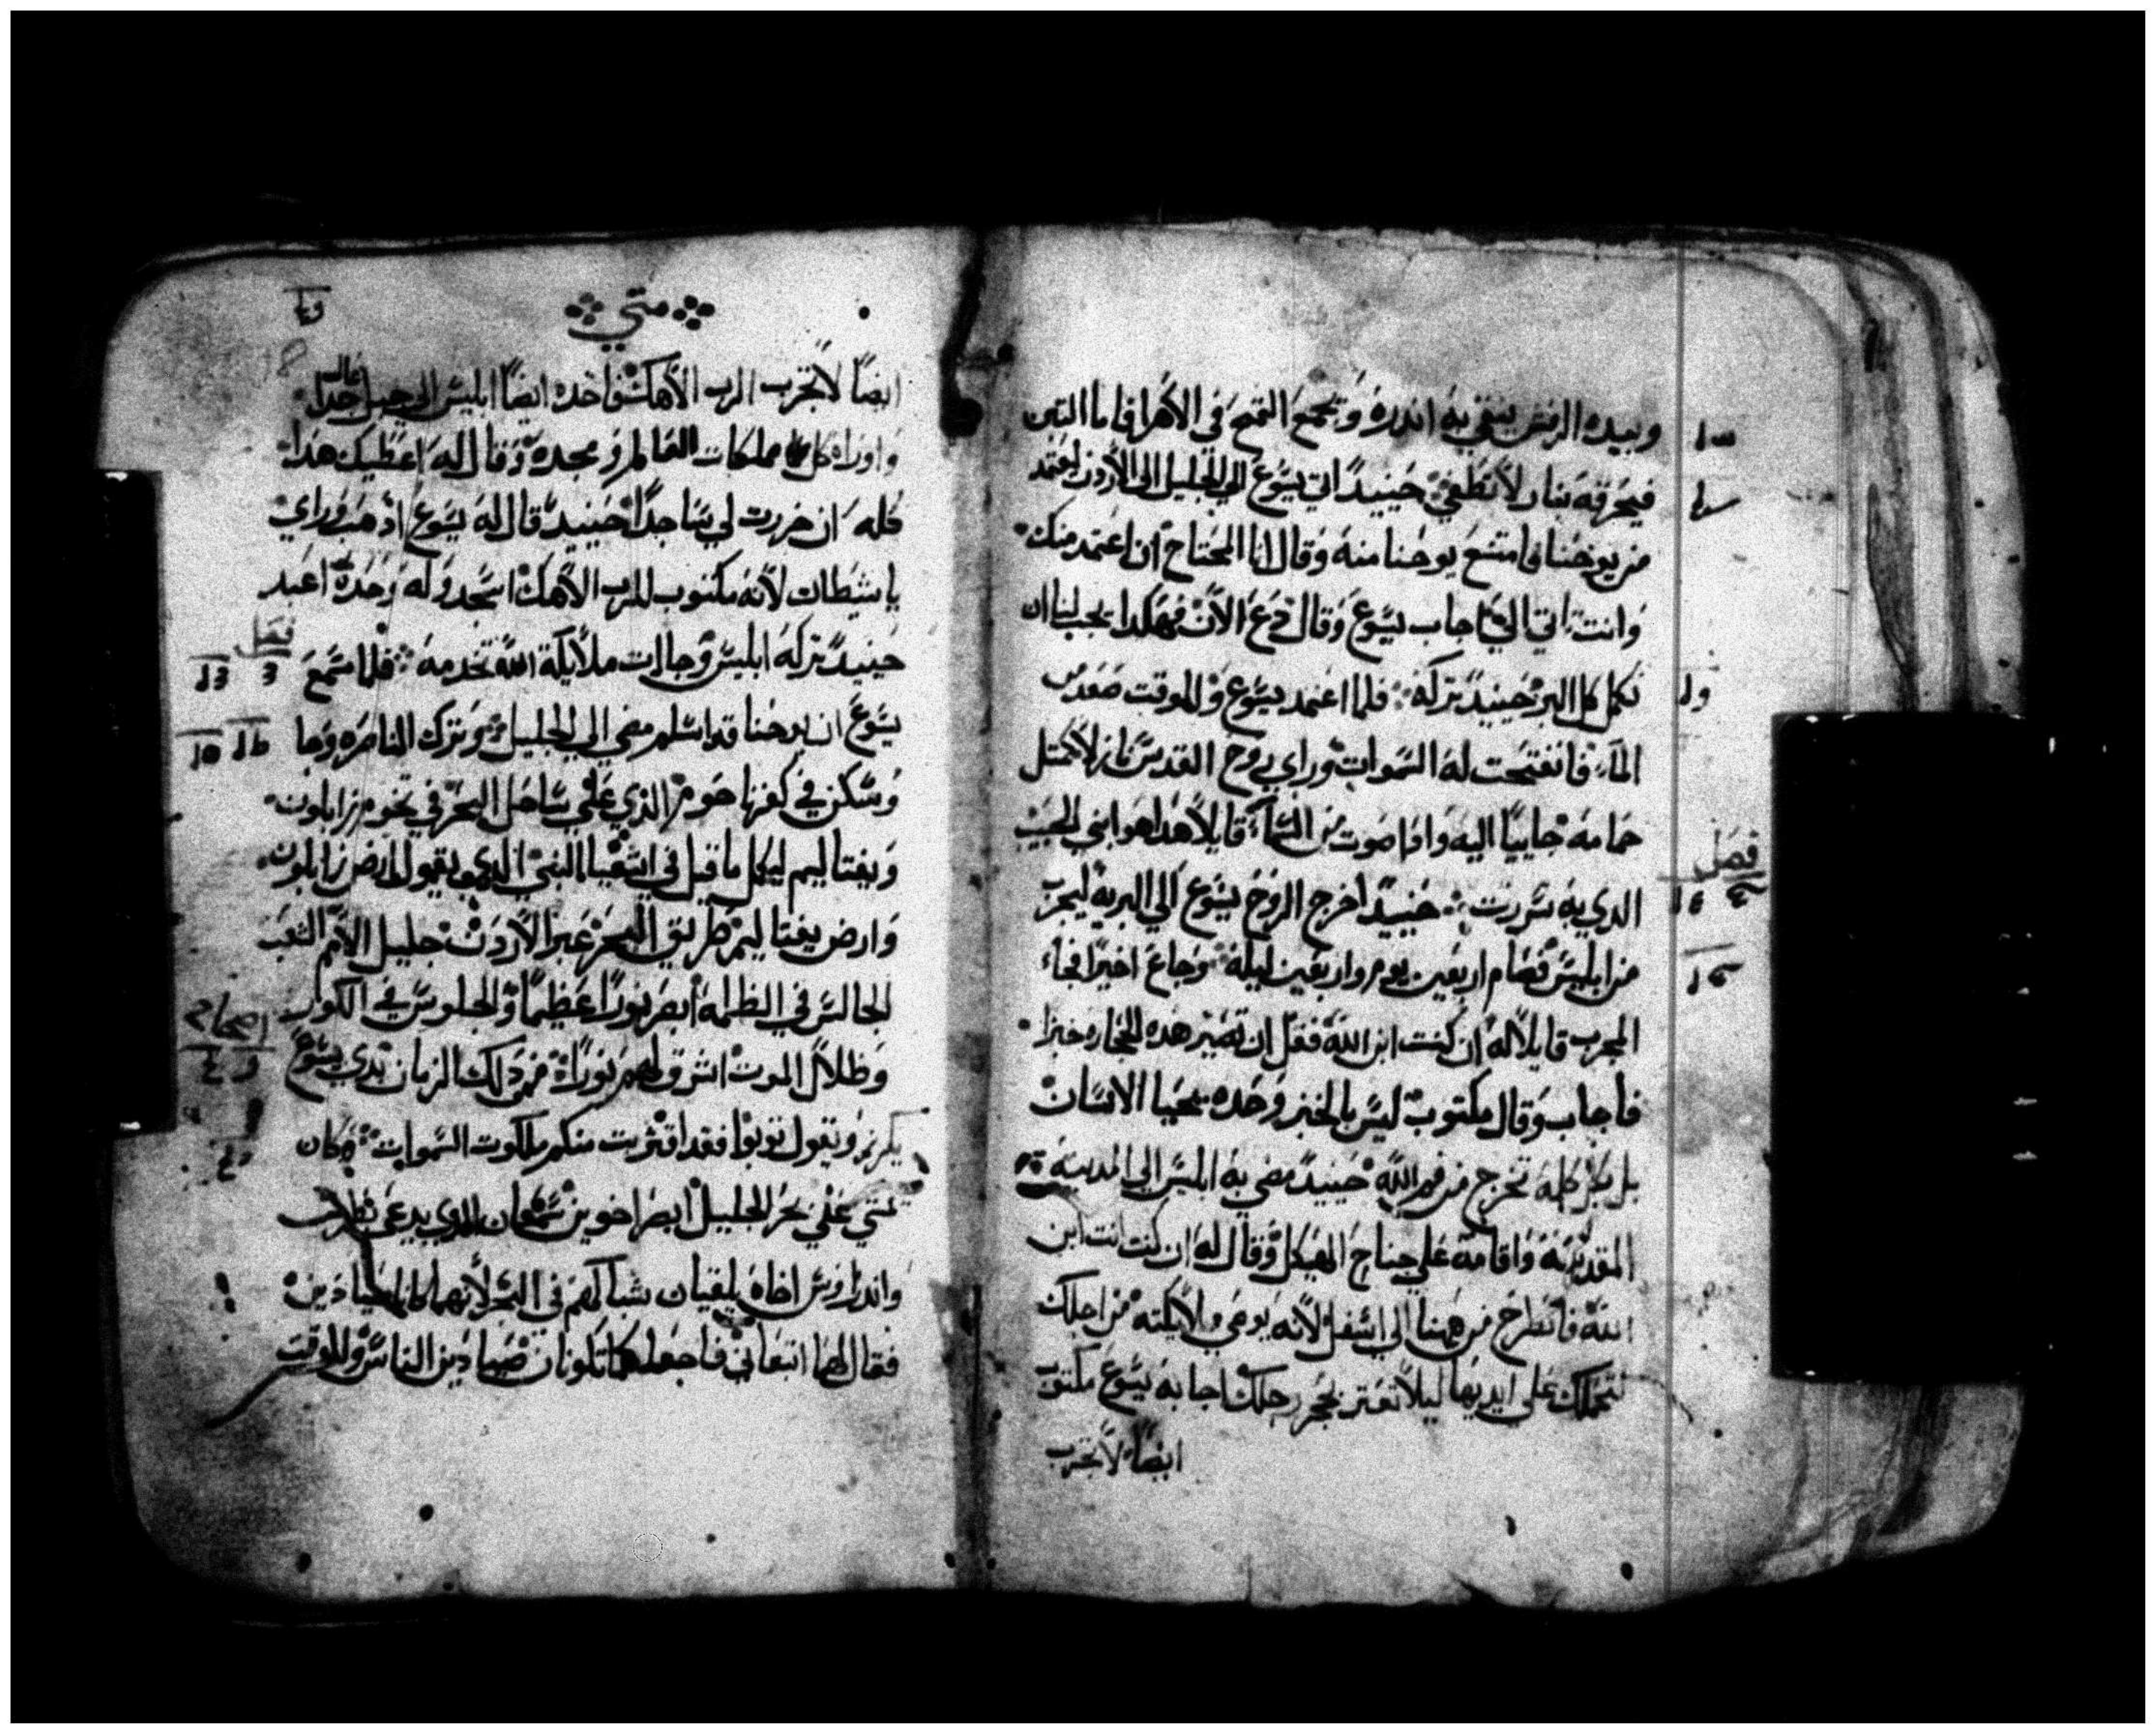 وبيده الرفش ينقي به اندره وتجمع القمح في الاهرا فاما التبن
فيحرقه بنار لا تطفي حينيدً اتي يسوع الي الجليل الي الأردن ليعتمد
من يوحنا فامتنع يوحنا منه وقال انا المحتاج ان اعتمد منك
وانت تاتي الي اجاب يسوع وقال دع الأن فهكدا يجب لنا ان
نكمل كل البر حينيدً تركه فلما اعتمد يسوع وللوقت صعد من
المآء فانفتحت له السموات وراي روح القدس نازلاً كمتل
حمامه جاييًا اليه وادا صوت من السمآء قايلاً هدا هو ابني الحبيب
الدي به سررت حينيدً اخرج الروح يسوع الي البريه ليجرب
فصل
من ابليس فصام اربعين يوم واربعين ليلة وجاع اخيرًا فجاء
المجرب قايلاً له ان كنت ابن الله فقل ان تصير هده الحجاره خبزا
فأجاب وقال مكتوب ليس بالخبز وحده يحيا الانسان
بل بكل كلمه تخرج من فم الله حينيدً مضي به ابليس الي المدينه
المقدسة واقامه علي جناح الهيكل وقال له ان كنت انت ابن
الله فانطرح من ههنا الي اسفل لأنه يوصي ملايكته من اجلك
لتحملك علي ايديها ليلا تعتر بحجر رجلك اجابه يسوع مكتوب
ايضًا لا تجرب
متي
ايضًا لا تجرب الرب الاهك فاخده ايضًا ابليس الي جبل عال جدا
واوراه كل مملكات العالم ومجده وقال له اعطيك هدا
كله ان خررت لي ساجدًا حينيدً قال له يسوع ادهب وراي
يا شيطان لأنه مكتوب للرب الاهك اسجد وله وحده اعبد
حينيدً تركه ابليس وجاات ملايكة الله تخدمه فلما سمع
فصل
يسوع ان يوحنا قد اسلم مضي الي الجليل وترك الناصره وجا
وسكن في كفرناحوم الذي علي ساحل البحر في تخوم زابلون
ونفتاليم ليكمل ما قيل في اشعيا النبي الدي يقول ارض زابلون
وارض نفتاليم طريق البحر عبر الأردن جليل الأمم الشعب
الجالس في الظلمه ابصر نورًا عظيمًا والجلوس في الكور
اصحاح
وظلال الموت اشرق لهم نورًا فمن دلك الزمان بدي يسوع
يكرز ويقول توبوا فقد اقتربت منكم ملكوت السموات وكان
يمشي علي بحر الجليل ابصر اخوين سمعان الدي يدعي بطرس
واندراوس اخاه يلقيان شباكهم في البحر لأنهما كانا صيادين
فقال لهما اتبعاني فاجعلكما تكونان صيادين الناس وللوقت